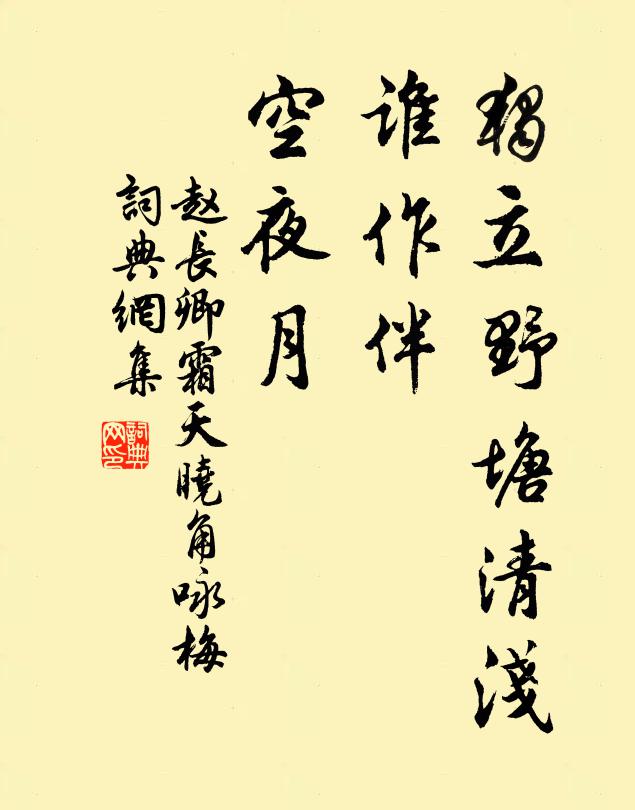 獨立野塘清淺
誰作伴
空夜月
赵長卿霜天曉角咏梅
詞典網集
詞典
网印